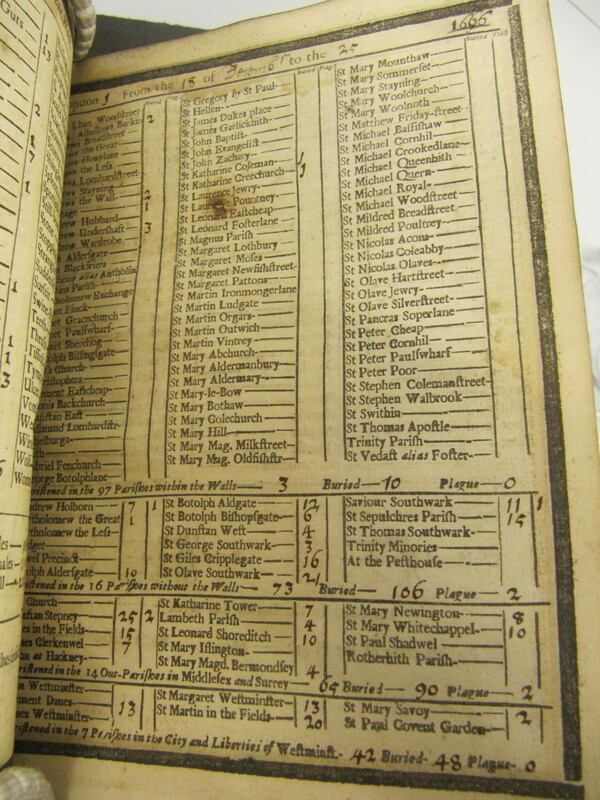 1666
From the 18 of Decemb^r to the 25
Guts
Buried Plag.
Woodstreet
Barkin 2
Breadstreet
the Great
Honylane
the Less
Lombardstreet
Stayning
the Wall 2
1
Hubbard
Undershaft 3
Wardrobe
Aldersgate
Blackfriers
alias Antholin
Parish
Exchange
Finck
Gracechurch
Paulswharf
Sherehog
Billingsgate
Church
Eastcheap
Backchurch
East
Lombardstr.
Fenchurch
George Botolphlane
Buried Plag.
St Gregory by St Paul
St Hellen
St James Dukes place
St James Garlickhith
St John Baptist
St John Evangelist
St John Zachary
St Katharine Coleman 1
St Katharine Creechurch 1
St Laurence Jewry
St Laurence Pountney
St Leonard Eastcheap
St Leonard Fosterlane
St Magnus Parish
St Margaret Lothbury
St Margaret Moses
St Margaret Newfishstreet
St Margaret Pattons
St Martin Ironmongerlane
St Martin Ludgate
St Martin Orgars
St Martin Outwich
St Martin Vintrey
St Mary Abchurch
St Mary Aldermanbury
St Mary Aldermary
St Mary-le-Bow
St Mary Bothaw
St Mary Colechurch
St Mary Hill
St Mary Mag. Milkstreet
St Mary Mag. Oldfishstr
Buried Plag.
St Mary Mounthaw
St Mary Sommerset
St Mary Stayning
St Mary Woolchurch
St Mary Woolnoth
St Matthew Friday-street
St Michael Bassishaw
St Michael Cornhil
St Michael Crookedlane
St Michael Queenhith
St Michael Quern
St Michael Royal
St Michael Woodstreet
St Mildred Breadstreet
St Mildred Poultrey
St Nicolas Acons
St Nicolas Coleabby
St Nicolas Olaves
St Olave Hartstreet
St Olave Jewry
St Olave Silverstreet
St Pancras Soperlane
St Peter Cheap
St Peter Cornhil
St Peter Paulswharf
St Peter Poor
St Stephen Colemanstreet
St Stephen Walbrook
St Swithin
St Thomas Apostle
Trinity Parish
St Vedast alias Foster
in the 97 Parishes within the Walls 3 Buried 10 Plague 0
Holborn 7 1
the Great 1
the Less
Precinct
Aldersgate 10
St Botolph Aldgate 12
St Botolph Bishopsgate 6
St Dunstan West 4
St George Southwark 3
St Giles Cripplegate 16
St Olave Southwark 21
Saviour Southwark 11 1
St Sepulchres Parish 15
St Thomas Southwark
Trinity Minories
At the Pesthouse
in the 16 Parishes without the Walls 73 Buried 106 Plague 2
Church
Stepney 25 2
in the Fields 15
Clerkenwel 7
at Hackney
St Katharine Tower 7
Lambeth Parish 4
St Leonard Shoreditch 10
St Mary Islington
St Mary Magd. Bermondsey 4
St Mary Newington 8
St Mary Whitechappel 10
St Paul Shadwel
Rotherhith Parish
in the 14 Out-Parishes in Middlesex and Surrey 65 Buried 90 Plague 2
Westminster
Danes 13
Westminster
St Margaret Westminster 13
St Martin in the Fields 20
St Mary Savoy 2
St Paul Covent Garden
in the 7 Parishes in the City and Liberties of Westminst. 42 Buried 48 Plague 0